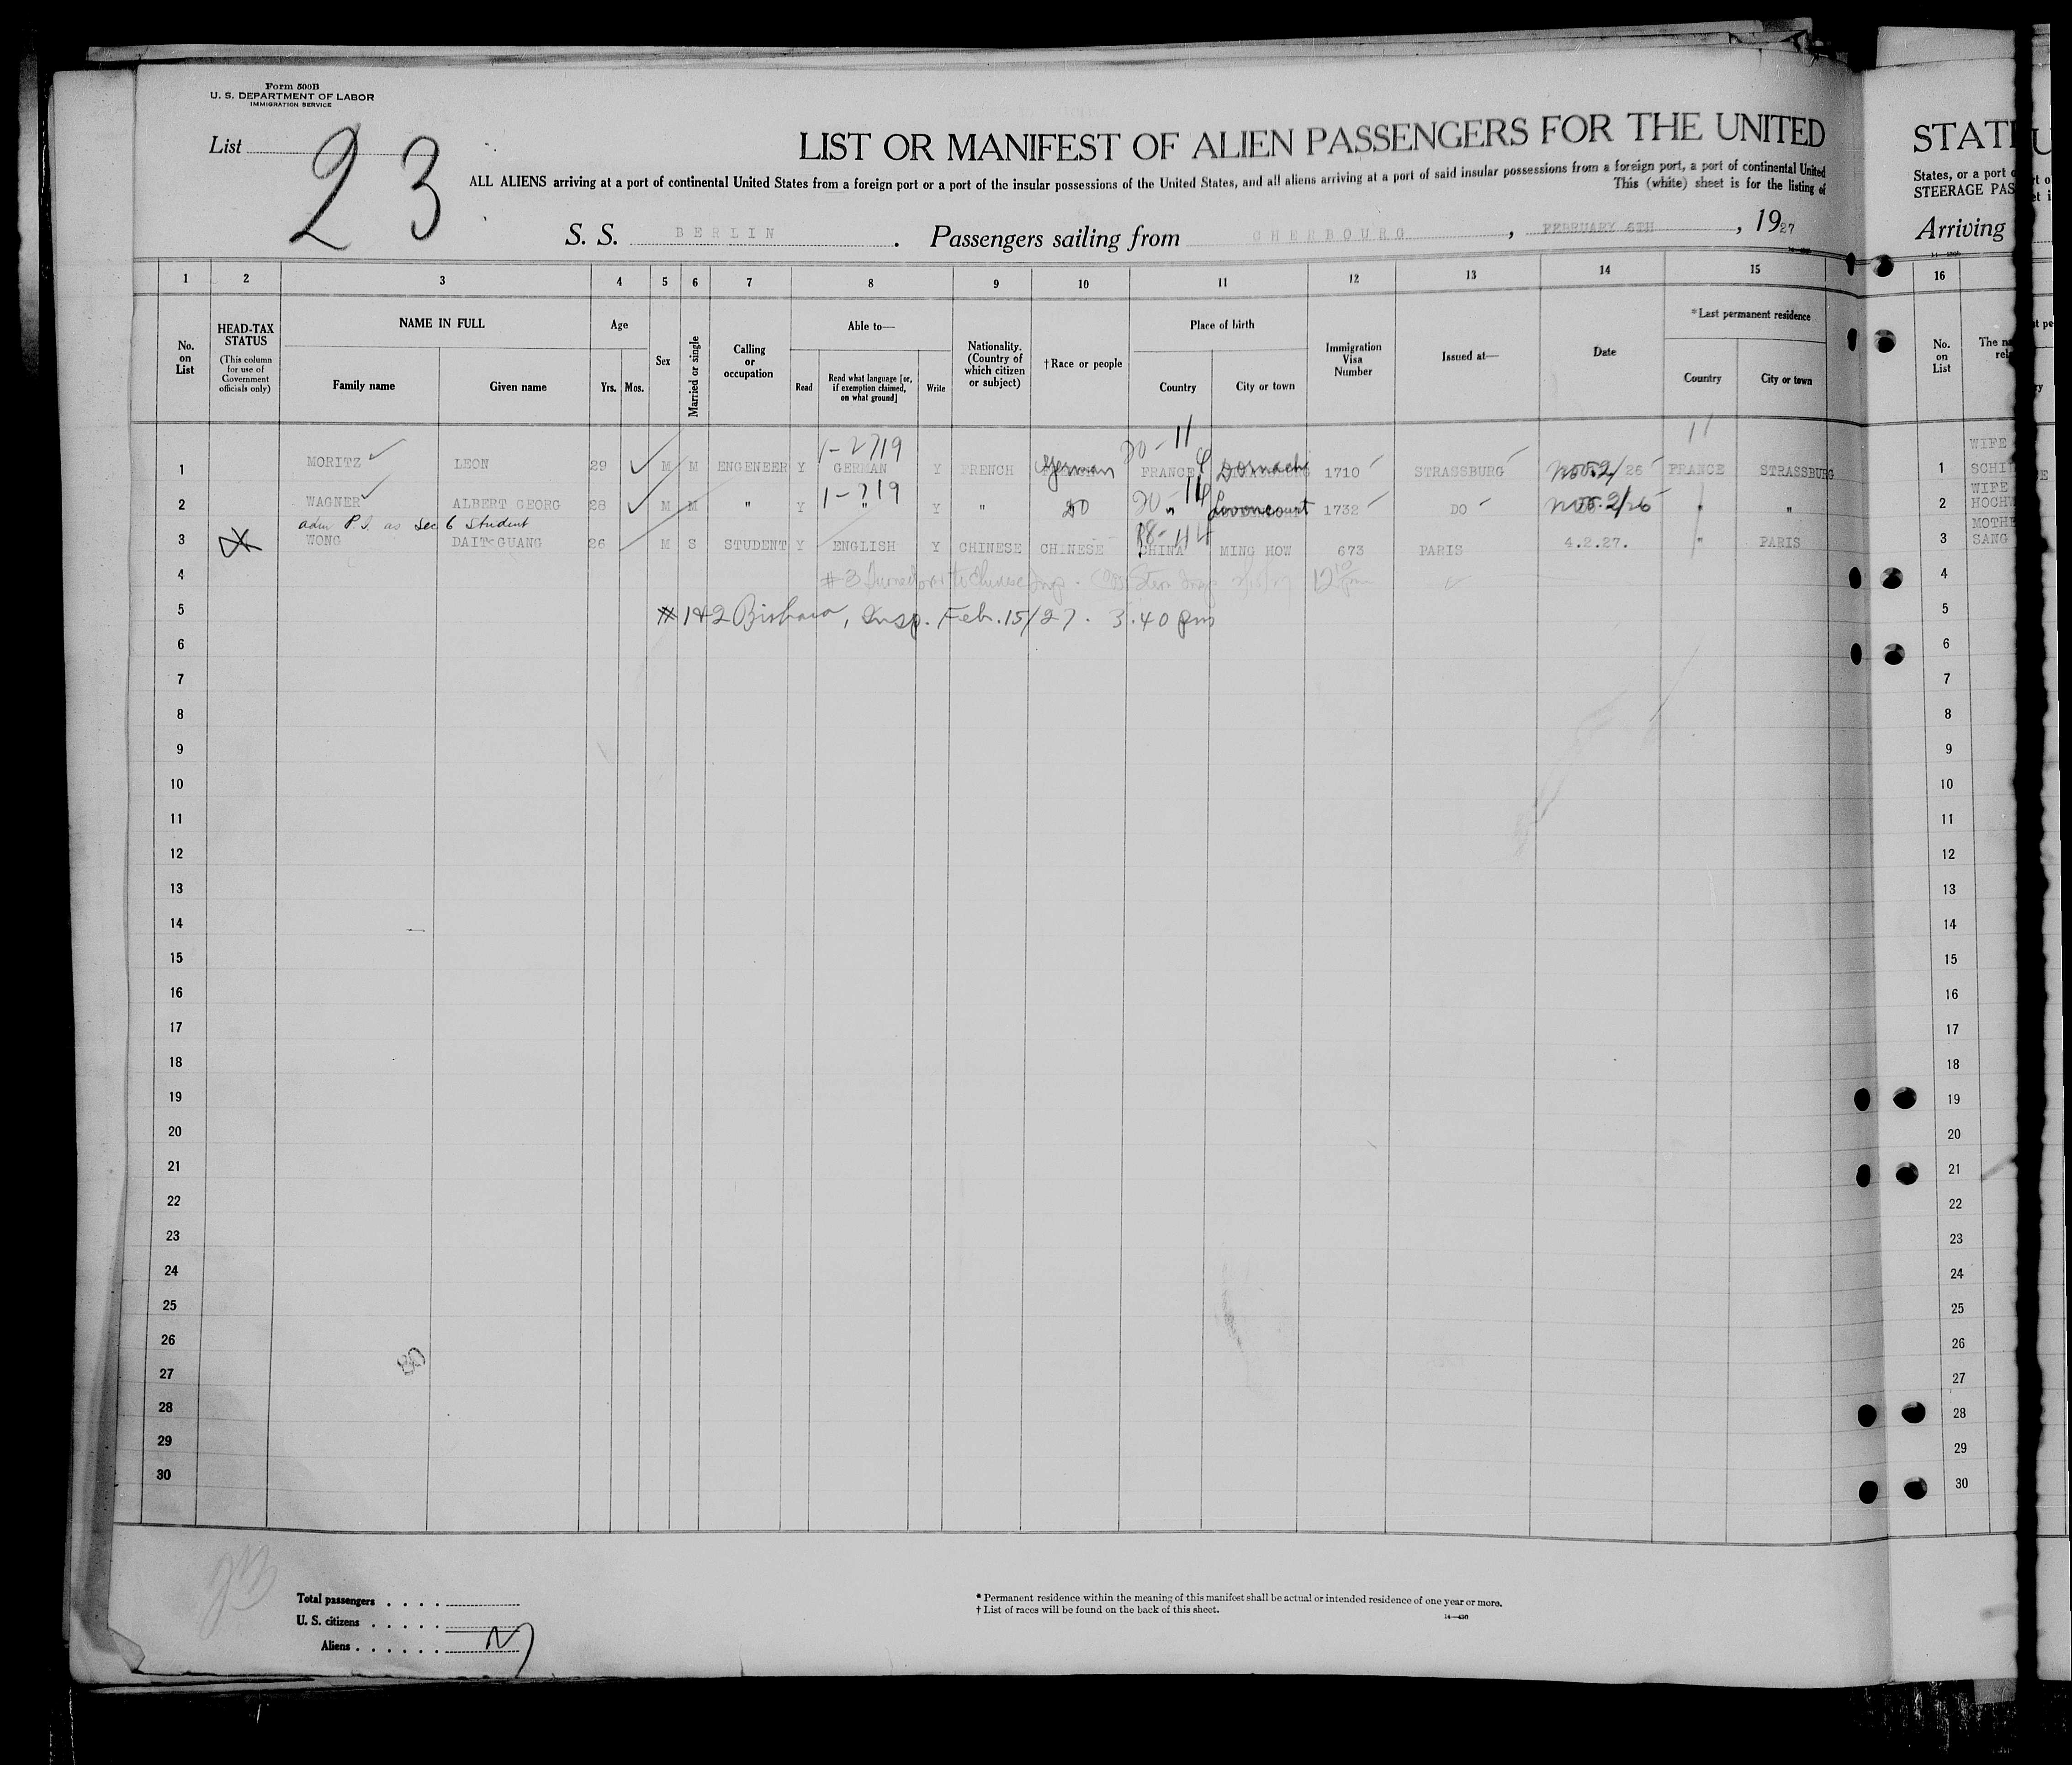 Form 500B
U. S. DEPARTMENT OF LABOR
IMMIGRATION SERVICE
List 23
LIST OR MANIFEST OF ALIEN PASSENGERS FOR THE UNITED
ALL ALIENS arriving at a port of continental United States from a foreign port or a port of the insular possessions of the United States, and all aliens arriving at a port of said insular possessions from a foreign port, a port of continental United
This (white) sheet is for the listing of
S. S. BERLIN. Passengers sailing from CHERBOURG, FEBRUARY 6TH, 1927
STAT
States, or a port
STEERAGE PAS
Arriving
1 2 3 4 5 6 7 8 9 10 11 12 13 14 15 16
No. on List
HEAD-TAX STATUS (This column for use of Government officials only)
NAME IN FULL
Family name Given name
Age
Yrs. Mos.
Sex
Married or single
Calling or occupation
Able to—
Read Read what language [or, if exemption claimed, on what ground] Write
Nationality. (Country of which citizen or subject)
† Race or people
Place of birth
Country City or town
Immigration Visa Number
Issued at—
Date
* Last permanent residence
Country City or town
No. on List
20-11
1-2719
1 MORITZ LEON 29 M M ENGENEER Y GERMAN Y FRENCH German FRANCE Dornach 1710 STRASSBURG Nov. 2/26 FRANCE STRASSBURG 1 WIFE
2 WAGNER ALBERT GEORG 28 M M " Y " Y " DO " 1732 DO Nov. 2/26 " " 2 WIFE
adm P.I. as Sec 6 Student
3 WONG DAIT GUANG 26 M S STUDENT Y ENGLISH Y CHINESE CHINESE CHINA MING HOW 673 PARIS 4.2.27. " PARIS 3 SANG
4 #3 4
5 #1&2 Insp. Feb. 15/27. 3.40 pm 5
6 6
7 7
8 8
9 9
10 10
11 11
12 12
13 13
14 14
15 15
16 16
17 17
18 18
19 19
20 20
21 21
22 22
23 23
24 24
25 25
26 26
80
27 27
28 28
29 29
30 30
Total passengers
U. S. citizens
Aliens
* Permanent residence within the meaning of this manifest shall be actual or intended residence of one year or more.
† List of races will be found on the back of this sheet.
14—430